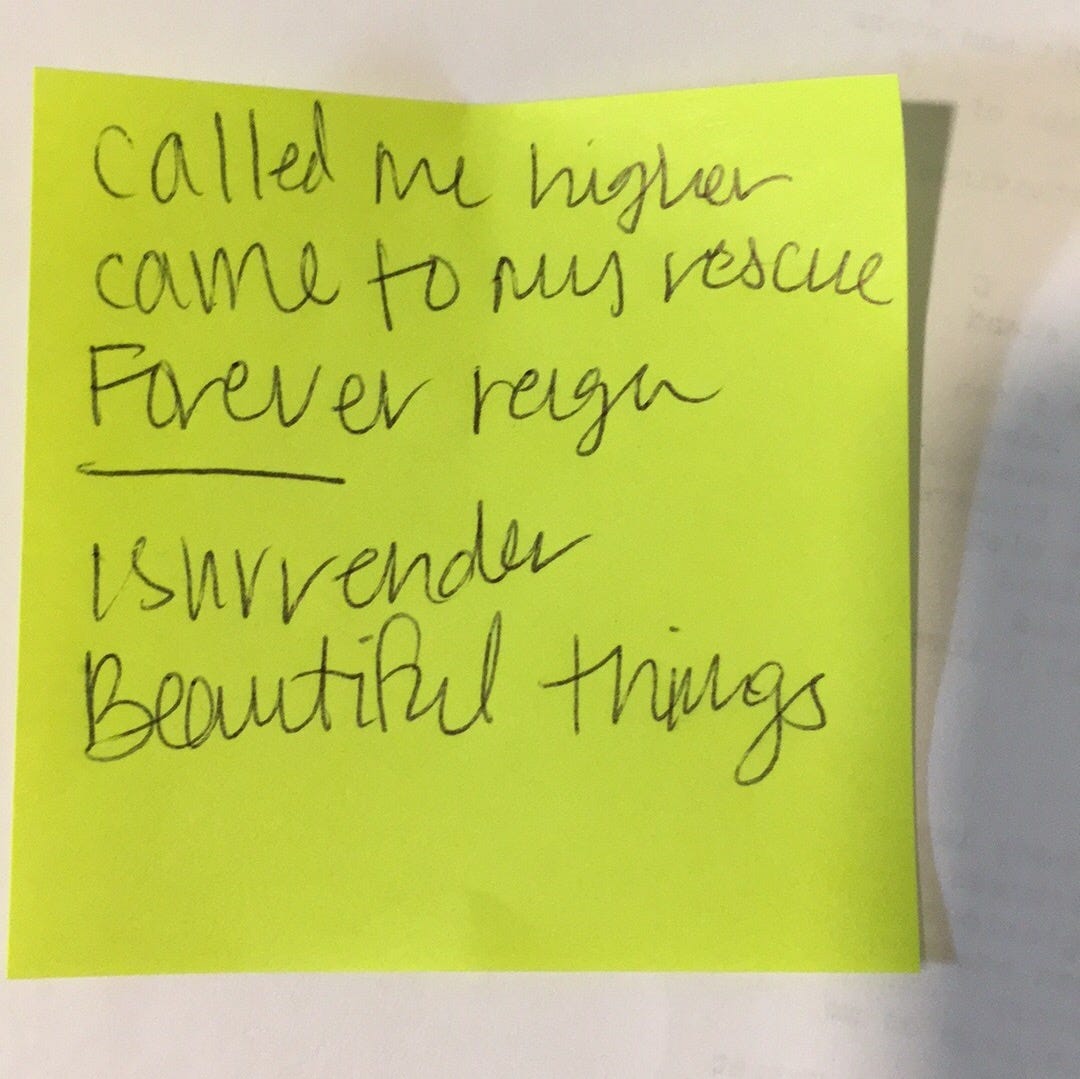 Called me higher
came to my rescue
Forever reign
I surrender
Beautiful things